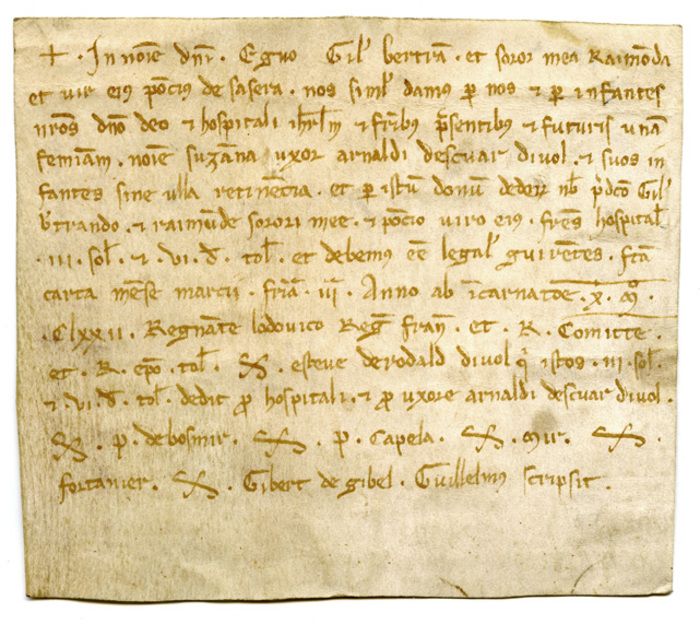 + . In noīe dn̄i . Eguo Gil̄ bertrā . et soror mea Raimōda
et vir eiꝰ pōciꝰ de sasera . nos simł damꝰ ꝑ nos & ꝑ infantes
nr̄os dn̄o deo & hospitali ih̄rłm & fr̄ibꝰ p̄sentibꝰ & futuris unā
femīam . noīe suzāna uxor arnaldi descuar divol . & suos in
fantes sine ulla retinēcia . et ꝑ istū donū dederr̄ nb̄ p̄dc̄o Gil̄
b̄trando . & raimūde sorori mee . & pōcio viro eiꝰ . fres̄ hospitał
. III . soł . & . VI . d̄ . toł . et debemꝰ eē legał guirētes . fc̄ā
carta mēse marcii . fr̄ia . III . Anno ab īcarnatōe . x̄ . m̄ .
. CLXXII . Regnāte lodovico Reḡ frañ . et . R . Comitte .
et . R . ep̄o . toł . esteve derodald divol q̄ istos . III . soł .
& . VI . d̄ . toł . dedit ꝓ hospitali . & ꝓ uxore arnaldi descuar divol .
. p . debosmir . . p . capela . . mir . .
fortanier . . Gibert de gibel . Guillelmꝰ scripsit .